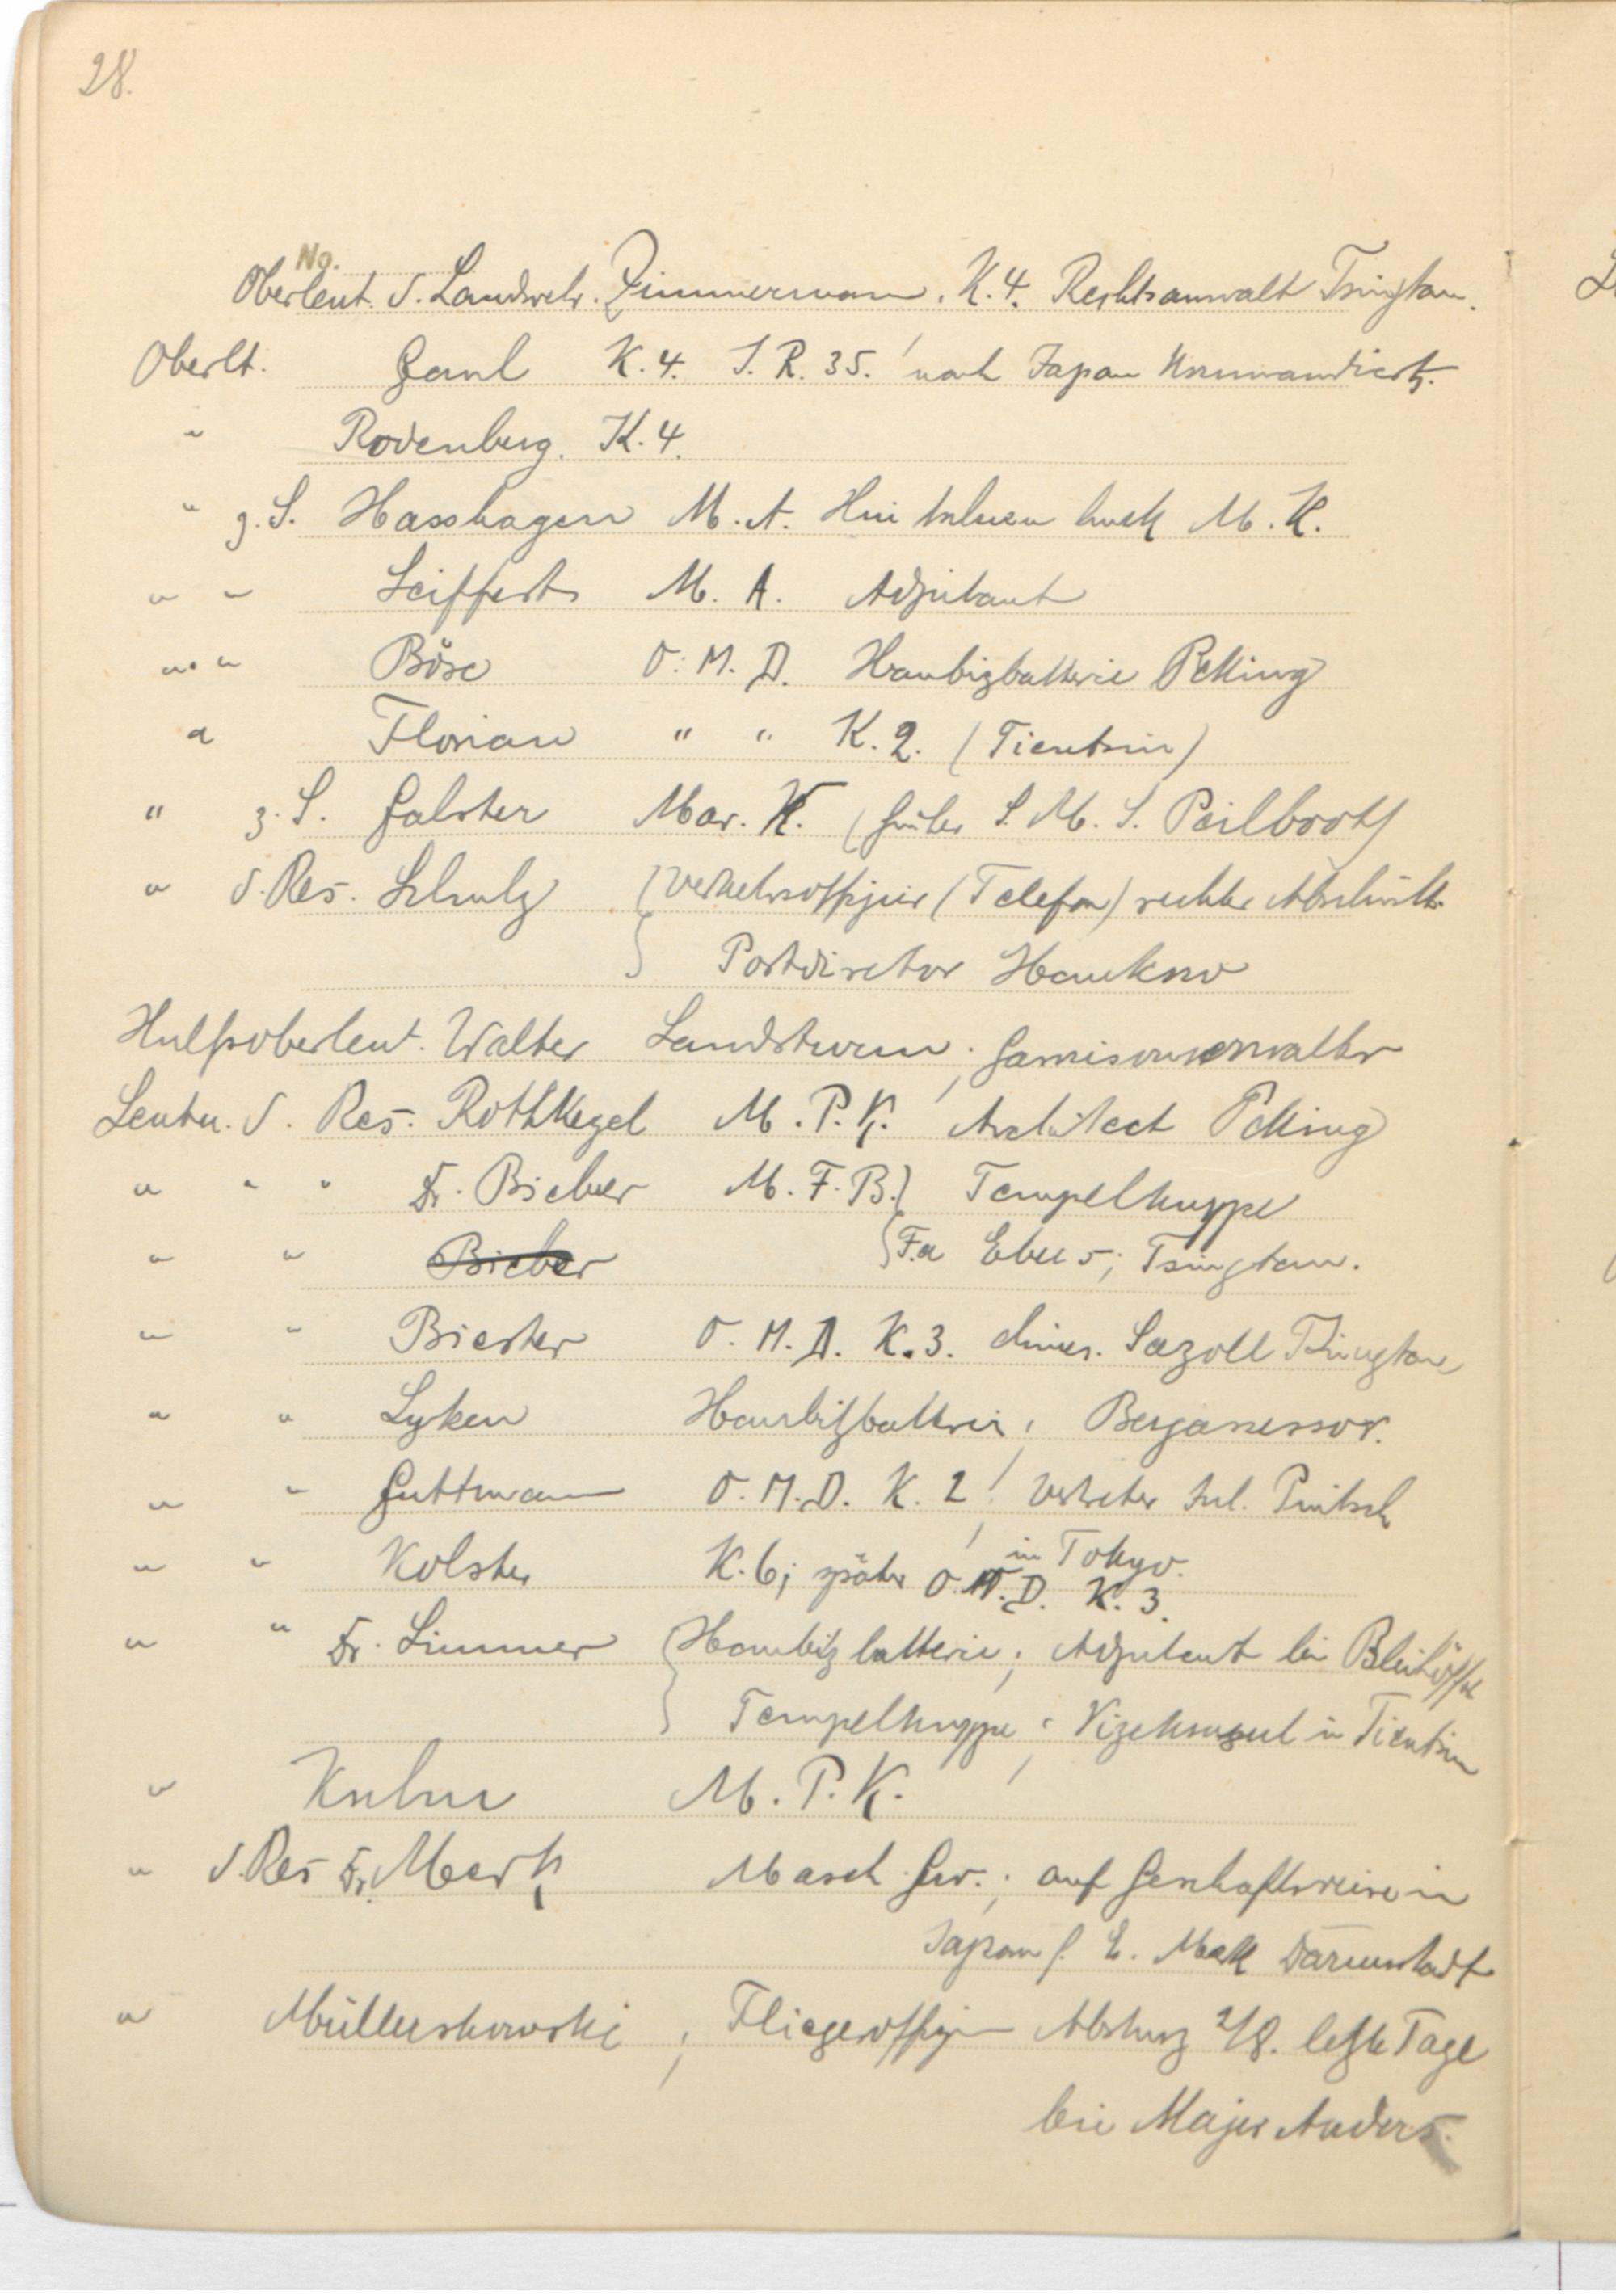 28.
No.
Oberleut. d. Landwehr. Zimmermann. K. 4. Rechtsanwalt Tsingtau.
Oberlt. Gaul K. 4. I. R. 35. nach Japan kommandiert.
" Rodenberg. K. 4.
" z. S. Hasshagen M. A. Hui tschuen huck M. K.
" " Seiffert M. A. Adjutant
" " Böse O. M. D. Haubizbatterie Peking
" Florian " " K. 2. (Tientsin)
" z. S. Galster Mar. K. (früher S. M. S.
" d. Res. Schulz (Verkehrsoffizier (Telefon) rechter Abschnitt.
Postdirektor Hankow
Hülfsoberleut. Walter Landsturm; Garnisonverwalter
Leutn. d. Res. Rothkegel M. P. K. Architect Peking
" " " Dr. Bieber M. F. B. Tempelkuppe
" " Bieber Fa Ebers; Tsingtau.
" " Biester O. M. D. K. 3. chines. Seezoll Tsingtau
" " Lyken Haubitzbatterie; Bergassessor.
" " Guttmann O. M. D. K. 2; Vertreter Jul. Pintsch
in Tokyo.
" " Kolster K. 6; später O. M. D. K. 3.
" " Dr. Simmer Haubitzbatterie; Adjutant bei Bleihöffel
Tempelkuppe; Vizekonsul in Tientsin
" Kuhn M. P. K.
" d. Res Dr. Merk Masch. Gew.; auf Geschäftsreise in
Japan f. E. Merk Darmstadt
" Müllerskowski; Fliegeroffizier Absturz 2/8. letzte Tage
bei Major Anders.